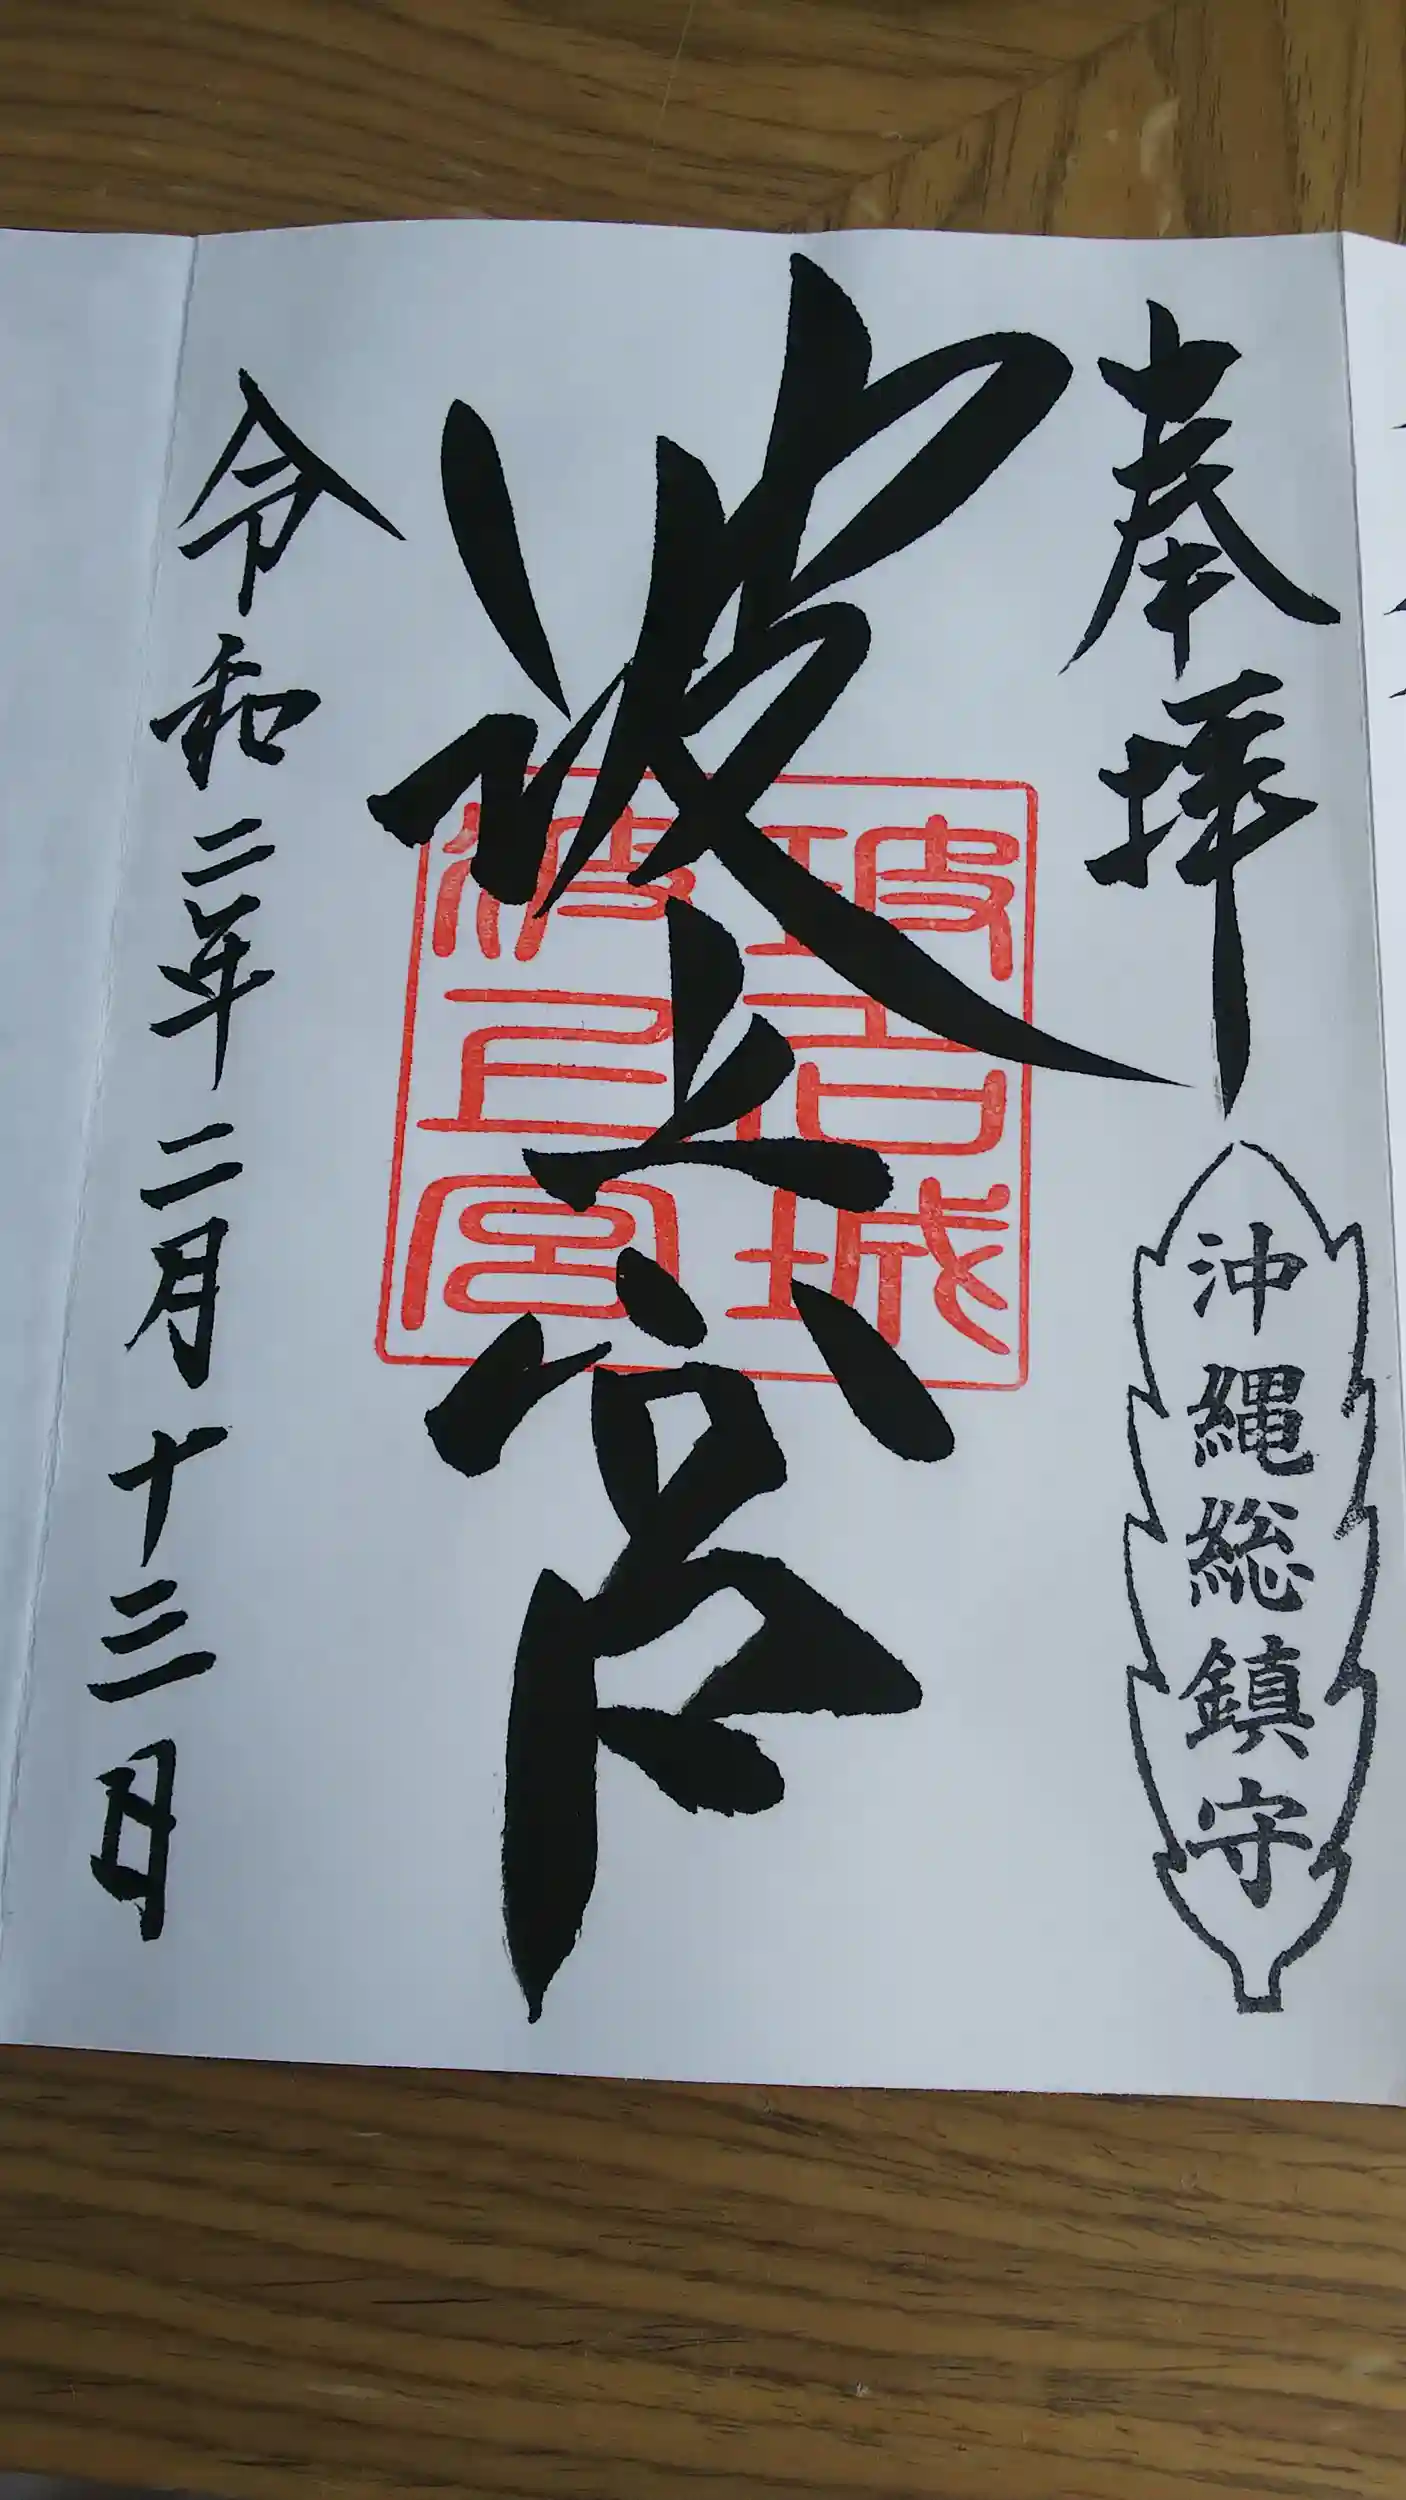 奉拝
沖縄総鎮守
波上宮
坡名城
波上宮
令和二年二月十三日